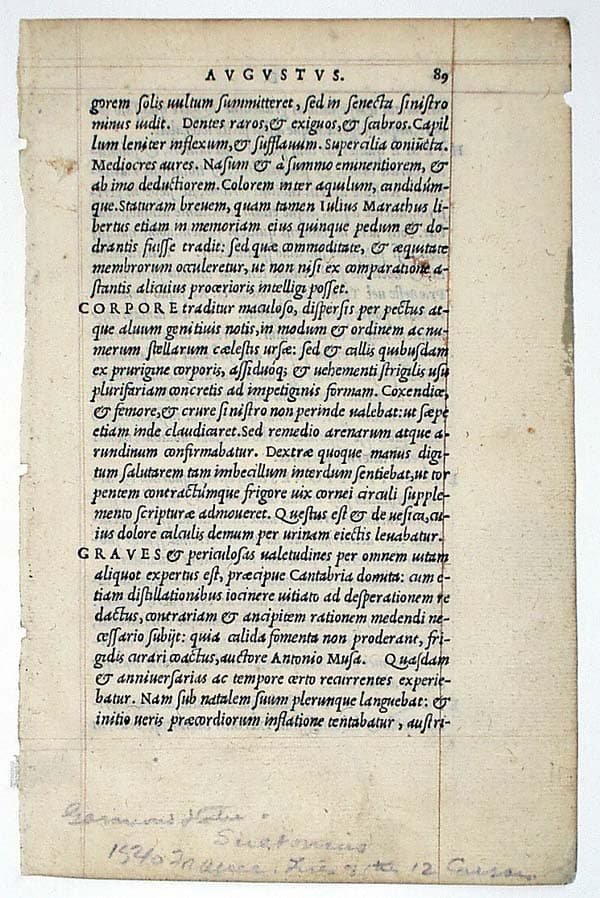 AVGVSTVS. 89
gorem solis uultum summitteret, sed in senecta sinistro
minus uidit. Dentes raros, & exiguos, & scabros. Capil
lum leniter inflexum, & sufflauum. Supercilia coniũcta.
Mediocres aures. Nasum & à summo eminentiorem, &
ab imo deductiorem. Colorem inter aquilum, candidúm-
que. Staturam breuem, quam tamen Iulius Marathus li-
bertus etiam in memoriam eius quinque pedum & do-
drantis fuisse tradit: sed quæ commoditate, & æquitate
membrorum occuleretur, ut non nisi ex comparatione a-
stantis alicuius procerioris intelligi posset.
CORPORE traditur maculoso, dispersis per pectus at-
que aluum genitiuis notis, in modum & ordinem ac nu-
merum stellarum cælestis ursæ: sed & callis quibusdam
ex prurigine corporis, assiduoq; & uehementi strigilis usu
plurifariam concretis ad impetiginis formam. Coxendicæ,
& femore, & crure sinistro non perinde ualebat: ut sæpe
etiam inde claudicaret. Sed remedio arenarum atque a-
rundinum confirmabatur. Dextræ quoque manus digi-
tum salutarem tam imbecillum interdum sentiebat, ut tor
pentem contractúmque frigore uix cornei circuli supple-
mento scripturæ admoueret. Questus est & de uesica, cu-
ius dolore calculis demum per urinam eiectis leuabatur.
GRAVES & periculosas ualetudines per omnem uitam
aliquot expertus est, præcipue Cantabria domita: cum e-
tiam distillationibus iocinere uitiato ad desperationem re
dactus, contrariam & ancipitem rationem medendi ne-
cessario subijt: quia calida fomenta non proderant, fri-
gidis curari coactus, auctore Antonio Musa. Quasdam
& anniuersarias ac tempore certo recurrentes experie-
batur. Nam sub natalem suum plerunque languebat: &
initio ueris præcordiorum inflatione tentabatur, austri-
Suetonius
1540 France. Lives of the 12 Caesars.